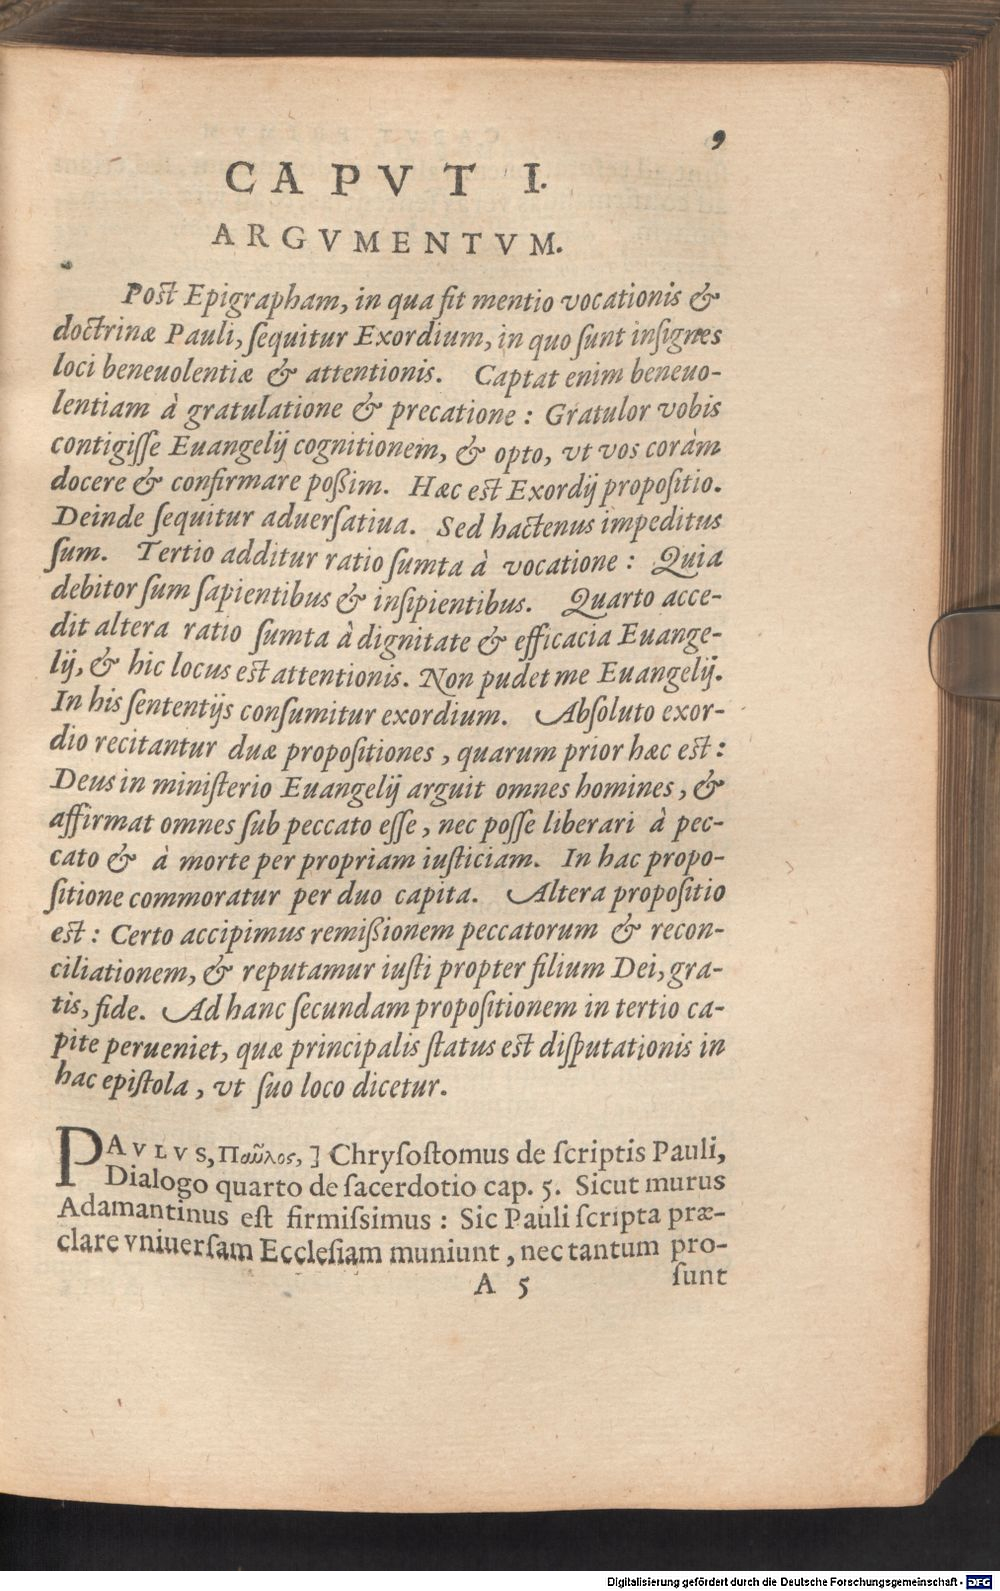 9
CAPVT I.
ARGVMENTVM.
Post Epigrapham, in qua fit mentio vocationis &
doctrinæ Pauli, ſequitur Exordium, in quo ſunt inſignes
loci beneuolentiæ & attentionis. Captat enim beneuo-
lentiam à gratulatione & precatione: Gratulor vobis
contigiſſe Euangelij cognitionem, & opto, vt vos coràm
docere & confirmare poßim. Hæc est Exordij propoſitio.
Deinde ſequitur aduerſatiua. Sed hactenus impeditus
ſum. Tertio additur ratio ſumta à vocatione: Quia
debitor ſum ſapientibus & inſipientibus. Quarto acce-
dit altera ratio ſumta à dignitate & efficacia Euange-
lij, & hic locus est attentionis. Non pudet me Euangelij.
In his ſententijs conſumitur exordium. Abſoluto exor-
dio recitantur duæ propoſitiones, quarum prior hæc est:
Deus in miniſterio Euangelij arguit omnes homines, &
affirmat omnes ſub peccato eſſe, nec poſſe liberari à pec-
cato & à morte per propriam iuſticiam. In hac propo-
ſitione commoratur per duo capita. Altera propoſitio
est: Certo accipimus remißionem peccatorum & recon-
ciliationem, & reputamur iuſti propter filium Dei, gra-
tis, fide. Ad hanc ſecundam propoſitionem in tertio ca-
pite perueniet, quæ principalis ſtatus est diſputationis in
hac epiſtola, vt ſuo loco dicetur.
PAVLVS, Παῦλος, ] Chryſoſtomus de ſcriptis Pauli,
Dialogo quarto de ſacerdotio cap. 5. Sicut murus
Adamantinus eſt firmiſsimus: Sic Pauli ſcripta præ-
clare vniuerſam Eccleſiam muniunt, nec tantum pro-
A 5 ſunt
Digitalisierung gefördert durch die Deutsche Forschungsgemeinschaft - DFG